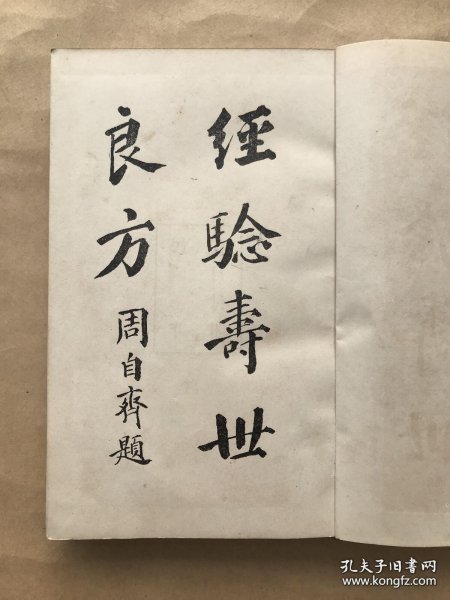 經驗壽世
良方
周自齊題
孔夫子旧书网
www.kongfz.com